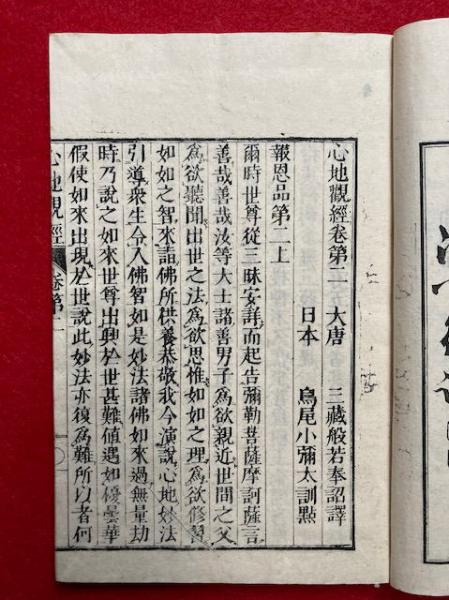 心地觀經卷第二
大唐 三藏般若奉詔譯
日本 鳥尾小彌太訓點
報恩品第二上
爾時世尊從三昧安詳而起告彌勒菩薩摩訶薩言
善哉善哉汝等大士諸善男子為欲親近世間之父
為欲聽聞出世之法為欲思惟如如之理為欲修習
如如之智來詣佛所供養恭敬我今演說心地妙法
引導衆生令入佛智如是妙法諸佛如來過無量劫
時乃說之如來世尊出興於世甚難値遇如優曇華
假使如來出現於世說此妙法亦復為難所以者何
心地觀經 卷第二